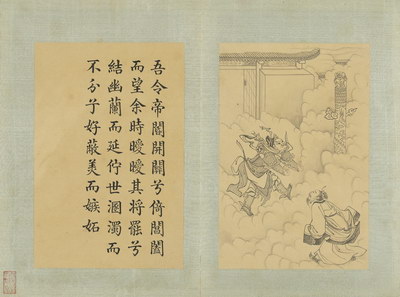 吾令帝閽開關兮倚閶闔
而望余時曖曖其將罷兮
結幽蘭而延佇世溷濁而
不分兮好蔽美而嫉妬